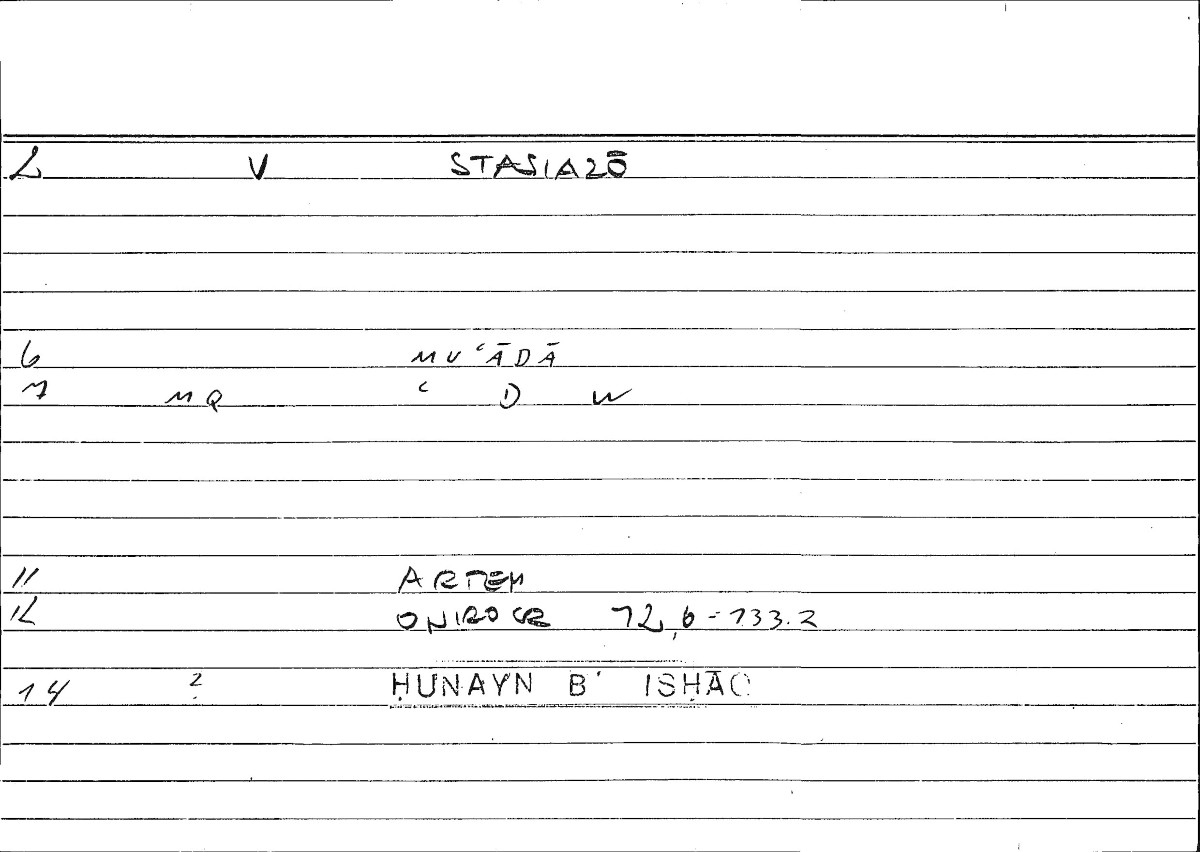 2 V STASIAZŌ
6 MUʿĀDĀ
7 MQ ʿ D W
11 ARTEM
12 ONIROCR 12,6-133.2
14 2 ḤUNAYN B' ISḤĀQ